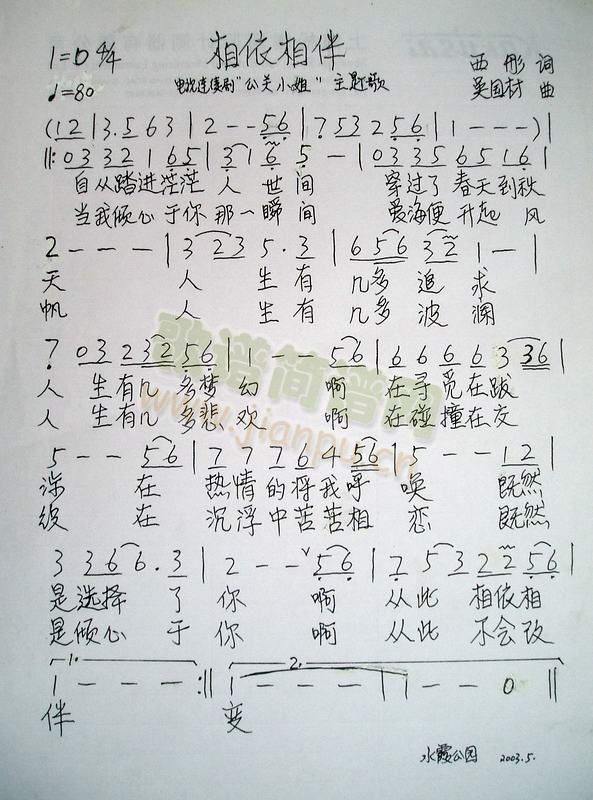 1=D 4/4 相依相伴 西彤 词
♩=80 电视连续剧"公关小姐"主题歌 吴国材 曲
(12|3.563|2--56|753256|1---)|
||:0332165|3165-|03356516|
自从踏进茫茫人世间 穿过了春天到秋
当我倾心于你那一瞬间 爱海便升起风
2---|3235.3|65632|1-|
天 人生有几多追求
帆 人生有几多波澜
7032323256|1--56|66663336|
人生有几多梦幻 啊 在寻觅在跋
人生有几多悲欢 啊 在碰撞在交
5--56|7776456|5--12|
涉 在热情的将我呼唤 既然
织 在沉浮中苦苦相恋 既然
3366.3|2--56|7532256|
是选择了你 啊 从此相依相
是倾心于你 啊 从此不会改
1. 2.
1---:||1---|1--0||
伴 变
水霞公园 2003.5.
歌谱简谱网
www.jianpu.cn